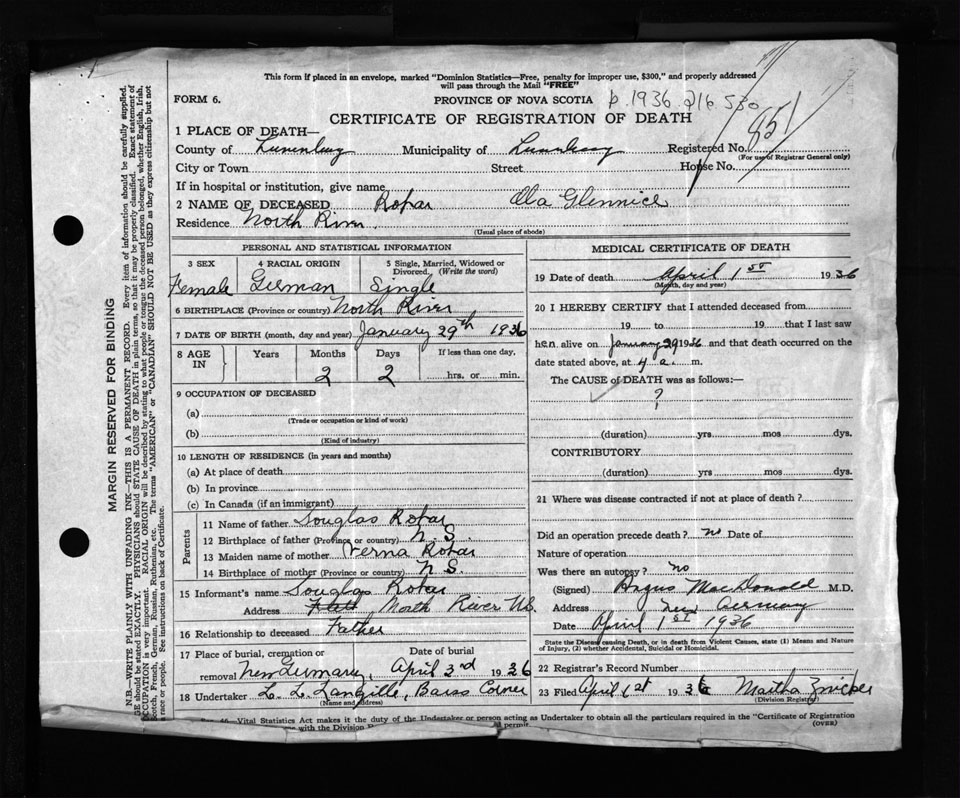 This form if placed in an envelope, marked "Dominion Statistics—Free, penalty for improper use, $300," and properly addressed
will pass through the Mail "FREE"
FORM 6.
PROVINCE OF NOVA SCOTIA
p. 1936
CERTIFICATE OF REGISTRATION OF DEATH
1 PLACE OF DEATH—
County of Lunenburg Municipality of Lunenburg Registered No. 851
(For use of Registrar General only)
City or Town Street House No.
If in hospital or institution, give name
2 NAME OF DECEASED Rofar Ola Glennice
Residence North River.
(Usual place of abode)
PERSONAL AND STATISTICAL INFORMATION
3 SEX 4 RACIAL ORIGIN 5 Single, Married, Widowed or Divorced. (Write the word)
Female German Single
6 BIRTHPLACE (Province or country) North River
7 DATE OF BIRTH (month, day and year) January 29th 1936
8 AGE IN Years Months Days If less than one day,
2 2 hrs. or min.
9 OCCUPATION OF DECEASED
(a)
(Trade or occupation or kind of work)
(b)
(Kind of industry)
10 LENGTH OF RESIDENCE (in years and months)
(a) At place of death
(b) In province
(c) In Canada (if an immigrant)
Parents
11 Name of father Douglas Rofar
12 Birthplace of father (Province or country) N. S.
13 Maiden name of mother Verna Rofar
14 Birthplace of mother (Province or country) N S.
15 Informant's name Douglas Rofar
Address North River NS.
16 Relationship to deceased Father
17 Place of burial, cremation or removal New Germany Date of burial April 3rd 1936
18 Undertaker L. L. Langille, Barss Corner
(Name and address)
MEDICAL CERTIFICATE OF DEATH
19 Date of death April 1st 1936
(Month, day and year)
20 I HEREBY CERTIFY that I attended deceased from
19 to 19 that I last saw
her alive on January 29 1936 and that death occurred on the
date stated above, at 4 a. m.
The CAUSE of DEATH was as follows:—
?
(duration) yrs. mos. dys.
CONTRIBUTORY
(duration) yrs. mos. dys.
21 Where was disease contracted if not at place of death?
Did an operation precede death? no Date of
Nature of operation
Was there an autopsy? no
(Signed) Angus MacDonald M.D.
Address New Germany
Date April 1st 1936
State the Disease causing Death, or in death from Violent Causes, state (1) Means and Nature
of Injury, (2) whether Accidental, Suicidal or Homicidal.
22 Registrar's Record Number
23 Filed April 1st 1936 Martha Zwicker
(Division Registrar)
Vital Statistics Act makes it the duty of the Undertaker or person acting as Undertaker to obtain all the particulars required in the "Certificate of Registration
one with the Division permit.
(OVER)
MARGIN RESERVED FOR BINDING
N.B.—WRITE PLAINLY WITH UNFADING INK—THIS IS A PERMANENT RECORD. Every item of information should be carefully supplied.
AGE should be stated EXACTLY. PHYSICIANS should STATE CAUSE OF DEATH in plain terms, so that it may be properly classified. Exact statement of
OCCUPATION is very important. RACIAL ORIGIN will be described by stating to what people or tongue the deceased person belonged, whether English, Irish,
Scotch, French, German, Russian, Ruthenian, etc. The terms "AMERICAN" or "CANADIAN" SHOULD NOT BE USED as they express citizenship but not
race or people. See instructions on back of Certificate.